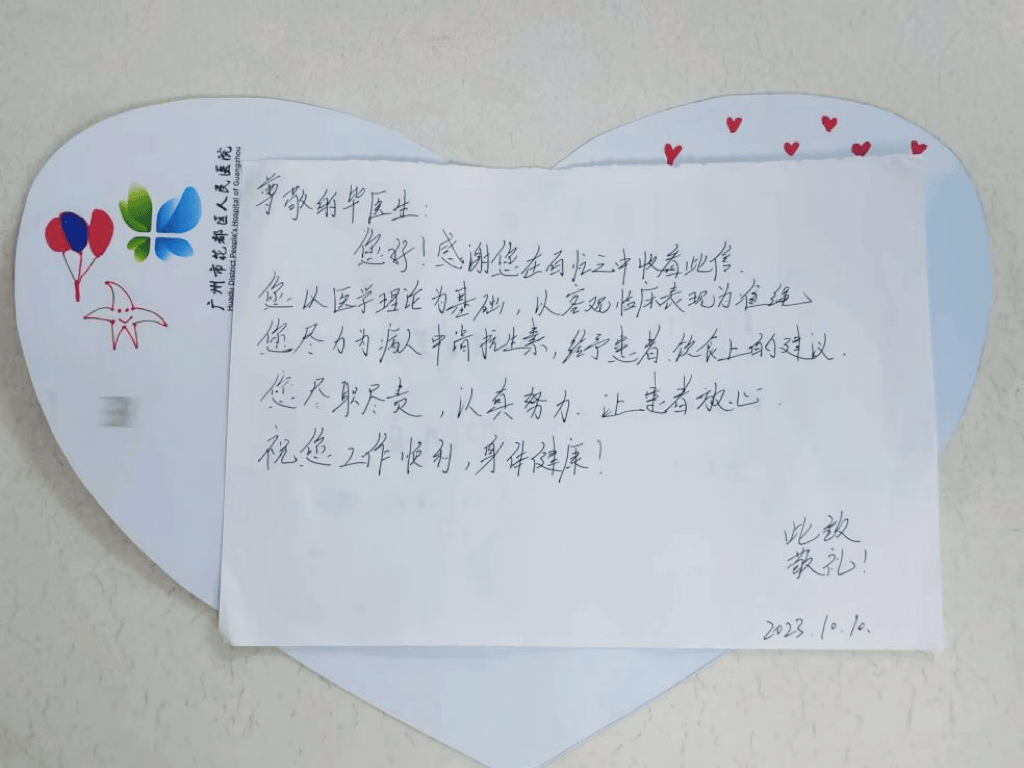 广州市花都区人民医院
Huadu District People's Hospital of Guangzhou
尊敬的毕医生:
您好!感谢您在百忙之中收看此信.
您以医学理论为基础,以客观临床表现为准绳
您尽力为病人申请抗生素,给予患者饮食上的建议.
您尽职尽责,认真努力.让患者放心.
祝您工作顺利,身体健康!
此致
敬礼!
2023.10.10.